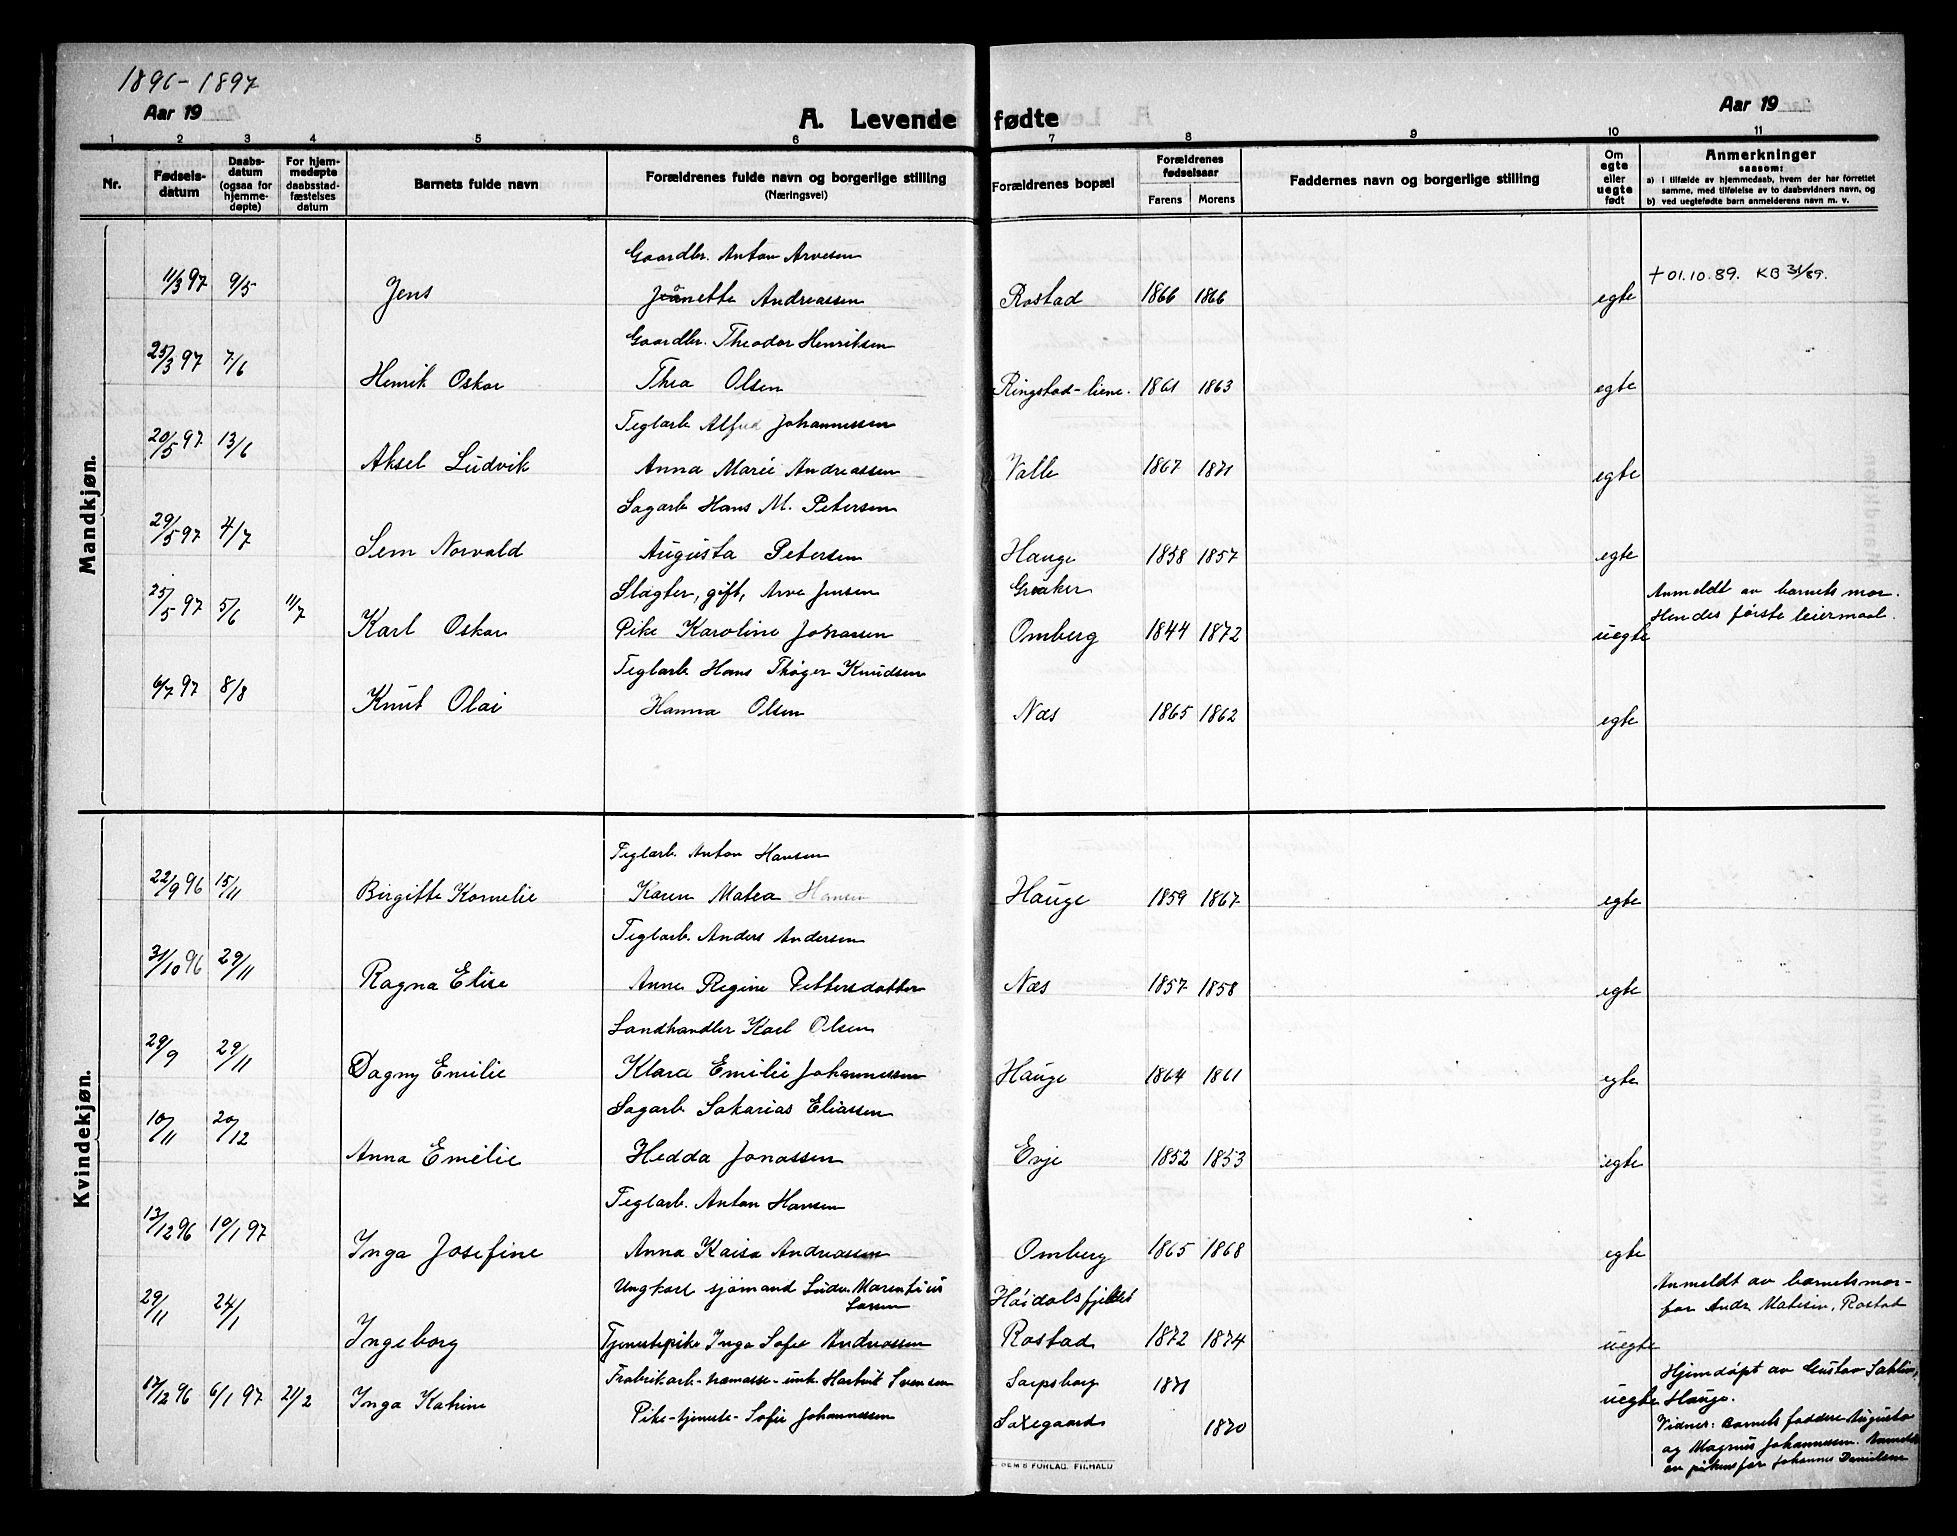 1896-1897
Aar 19
A. Levende fødte
Aar 19
1 2 3 4 5 6 7 8 9 10 11
Nr.
Fødsels-
datum
Daabs-
datum
(ogsaa for
hjemme-
døpte)
For hjem-
medøpte
daabsstad-
fæstelses
datum
Barnets fulde navn
Forældrenes fulde navn og borgerlige stilling
(Næringsvei)
Forældrenes bopæl
Forældrenes
fødselsaar
Farens Morens
Faddernes navn og borgerlige stilling
Om
egte
eller
uegte
født
Anmerkninger
saasom:
a) i tilfælde av hjemmedaab, hvem der har forrettet
samme, med tilføielse av to daabsvidners navn, og
b) ved uegtefødte barn anmelderens navn m. v.
Mandkjøn.
Gaardbr. Anton Arvesen
11/3 97 9/5 Jens Jeanette Andreassen Rostad 1866 1866 egte † 01.10.89. KB 31/89.
Gaardbr. Theodor Henriksen
25/3 97 7/6 Henrik Oskar Thea Olsen Ringstad-liene. 1861 1863 egte
Teglarb Alfred Johannessen
20/5 97 13/6 Aksel Ludvik Anna Marie Andreassen Valle 1867 1871 egte
Sagarb Hans M. Petersen
29/5 97 4/7 Sem Norvald Augusta Petersen Hauge 1858 1857 egte
Slagter, gift, Arve Jensen Greaker Anmeldt av barnets mor.
25/5 97 5/6 11/7 Karl Oskar Pike Karoline Johnassen Omberg 1844 1872 uegte Hendes første leiermaal.
Teglarb Hans Thøger Knudsen
6/7 97 8/8 Knut Olai Hanna Olsen Næs 1865 1862 egte
Kvindekjøn.
Teglarb. Anton Hansen
22/9 96 15/11 Birgitte Kornelie Karen Matea Hansen Hauge 1859 1867 egte
Teglarb. Anders Andersen
31/10 96 29/11 Ragna Elise Anne Regine Pettersdatter Næs 1857 1858 egte
Landhandler Karl Olsen
29/9 29/11 Dagny Emilie Klara Emilie Johannessen Hauge 1864 1861 egte
Sagarb Sakarias Eliassen
10/11 20/12 Anna Emelie Hedda Jonassen Evje 1852 1853 egte
Teglarb. Anton Hansen
13/12 96 10/1 97 Inga Josefine Anna Kaisa Andreassen Omberg 1865 1868 egte
Ungkarl sjømand Ludv. Marentius
Larsen Høidalsfjeldet Anmeldt av barnets mor-
far Andr. Matisen, Rostad
29/11 24/1 Ingeborg Tjenestepike Inga Sofie Andreassen Rostad 1872 1874 uegte
Frabrikarb - Svensen Sarpsborg 1871 Hjemdøpt av Gustav
17/12 96 6/1 97 21/2 Inga Katrine Pike-tjeneste- Sofie Johannessen Saxegaard 1870 uegte Hauge.
Vidner: Barnets faddere Augusta
og Magnus Johannessen. Anmeldt
av pikens far Johannes Danielsen
FORLAG. FR.HALD